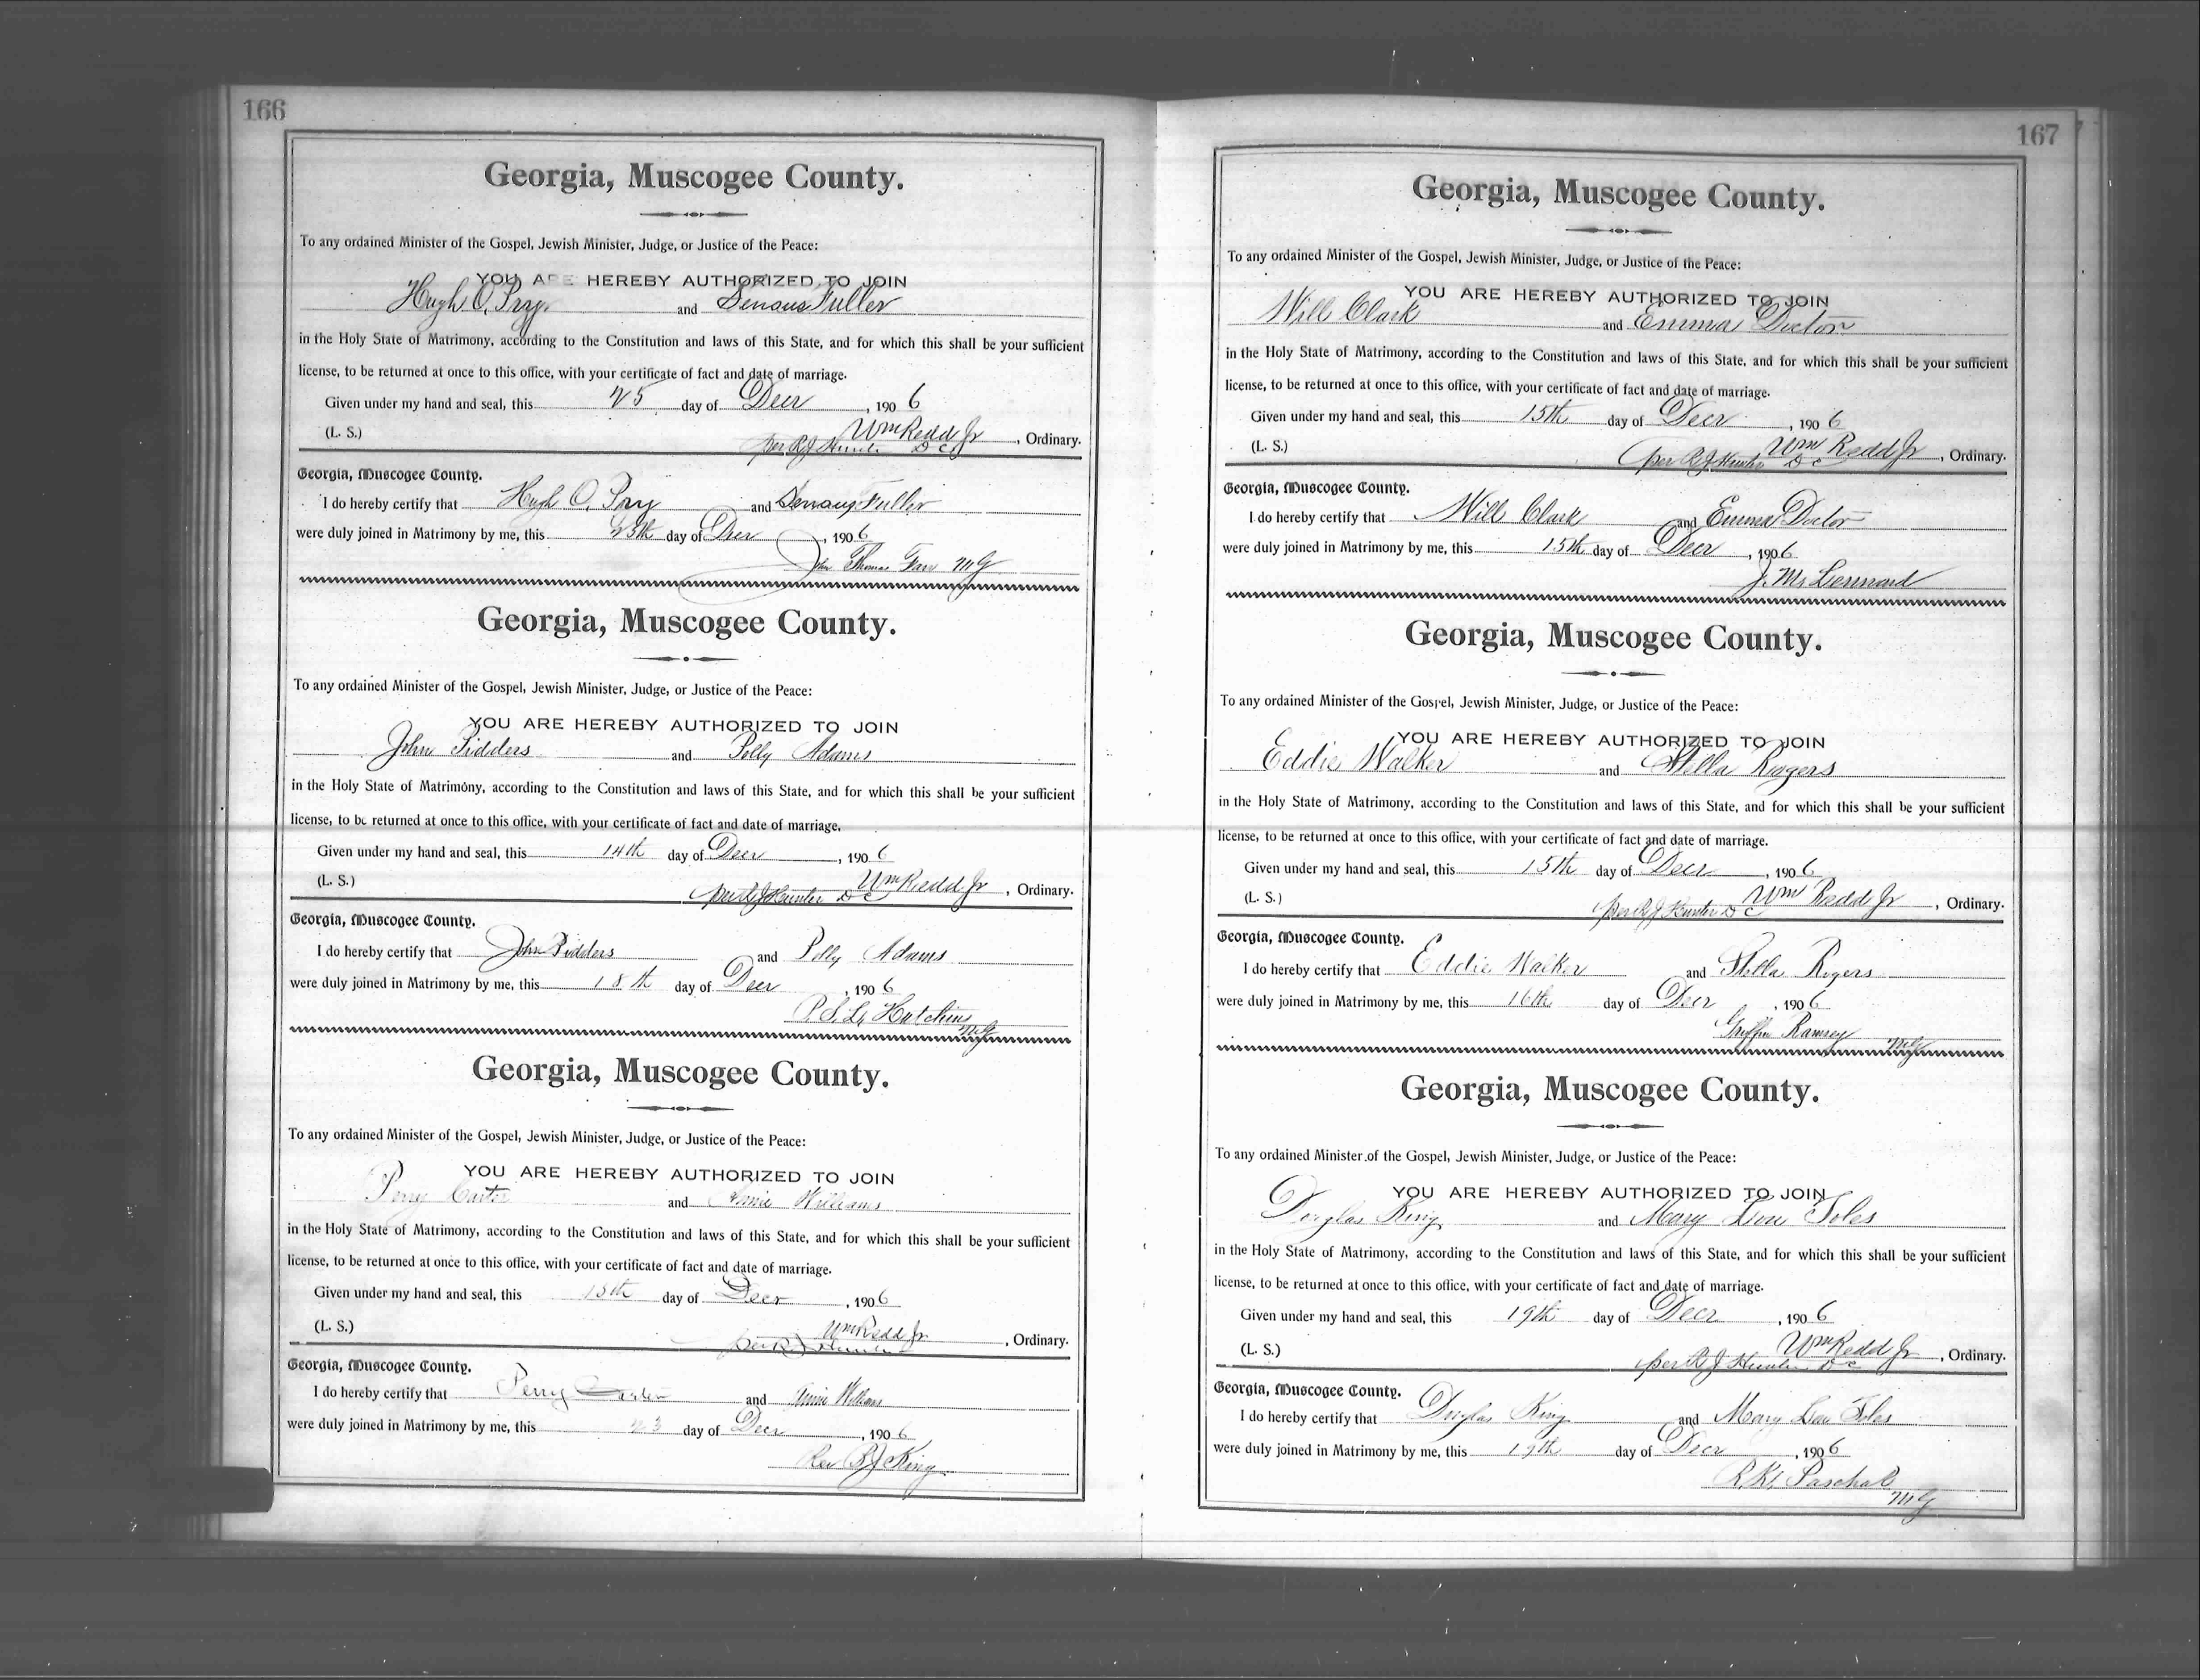 166
Georgia, Muscogee County.
To any ordained Minister of the Gospel, Jewish Minister, Judge, or Justice of the Peace:
YOU ARE HEREBY AUTHORIZED TO JOIN
Hugh O. and Fuller
in the Holy State of Matrimony, according to the Constitution and laws of this State, and for which this shall be your sufficient
license, to be returned at once to this office, with your certificate of fact and date of marriage.
Given under my hand and seal, this 25 day of Decr, 1906
(L. S.) Wm Redd Jr, Ordinary.
per R J Hunter D C
Georgia, Muscogee County.
I do hereby certify that Hugh O. and Fuller
were duly joined in Matrimony by me, this 25th day of Decr, 1906
Jno Thomas MG
Georgia, Muscogee County.
To any ordained Minister of the Gospel, Jewish Minister, Judge, or Justice of the Peace:
YOU ARE HEREBY AUTHORIZED TO JOIN
John Pidders and Polly Adams
in the Holy State of Matrimony, according to the Constitution and laws of this State, and for which this shall be your sufficient
license, to be returned at once to this office, with your certificate of fact and date of marriage.
Given under my hand and seal, this 14th day of Decr, 1906
(L. S.) Wm Redd Jr, Ordinary.
per R J Hunter D C
Georgia, Muscogee County.
I do hereby certify that John Pidders and Polly Adams
were duly joined in Matrimony by me, this 18th day of Decr, 1906
P. S. L. Hutchins
MG
Georgia, Muscogee County.
To any ordained Minister of the Gospel, Jewish Minister, Judge, or Justice of the Peace:
YOU ARE HEREBY AUTHORIZED TO JOIN
Perry Carter and Annie Williams
in the Holy State of Matrimony, according to the Constitution and laws of this State, and for which this shall be your sufficient
license, to be returned at once to this office, with your certificate of fact and date of marriage.
Given under my hand and seal, this 15th day of Decr, 1906
(L. S.) Wm Redd Jr, Ordinary.
per R J Hunter
Georgia, Muscogee County.
I do hereby certify that Perry Carter and Annie Williams
were duly joined in Matrimony by me, this 23 day of Decr, 1906
Rev R J King
167
Georgia, Muscogee County.
To any ordained Minister of the Gospel, Jewish Minister, Judge, or Justice of the Peace:
YOU ARE HEREBY AUTHORIZED TO JOIN
Will Clark and Emma Doctor
in the Holy State of Matrimony, according to the Constitution and laws of this State, and for which this shall be your sufficient
license, to be returned at once to this office, with your certificate of fact and date of marriage.
Given under my hand and seal, this 15th day of Decr, 1906
(L. S.) Wm Redd Jr, Ordinary.
per R J Hunter D C
Georgia, Muscogee County.
I do hereby certify that Will Clark and Emma Doctor
were duly joined in Matrimony by me, this 15th day of Decr, 1906
J. M. Lennard
Georgia, Muscogee County.
To any ordained Minister of the Gospel, Jewish Minister, Judge, or Justice of the Peace:
YOU ARE HEREBY AUTHORIZED TO JOIN
Eddie Walker and Stella Rogers
in the Holy State of Matrimony, according to the Constitution and laws of this State, and for which this shall be your sufficient
license, to be returned at once to this office, with your certificate of fact and date of marriage.
Given under my hand and seal, this 15th day of Decr, 1906
(L. S.) Wm Redd Jr, Ordinary.
per R J Hunter D C
Georgia, Muscogee County.
I do hereby certify that Eddie Walker and Stella Rogers
were duly joined in Matrimony by me, this 16th day of Decr, 1906
Griffin Ramsey MG
Georgia, Muscogee County.
To any ordained Minister of the Gospel, Jewish Minister, Judge, or Justice of the Peace:
YOU ARE HEREBY AUTHORIZED TO JOIN
Douglas King and Mary Lou Toles
in the Holy State of Matrimony, according to the Constitution and laws of this State, and for which this shall be your sufficient
license, to be returned at once to this office, with your certificate of fact and date of marriage.
Given under my hand and seal, this 19th day of Decr, 1906
(L. S.) Wm Redd Jr, Ordinary.
per R J Hunter D C
Georgia, Muscogee County.
I do hereby certify that Douglas King and Mary Lou Toles
were duly joined in Matrimony by me, this 19th day of Decr, 1906
R. K. Paschal
MG